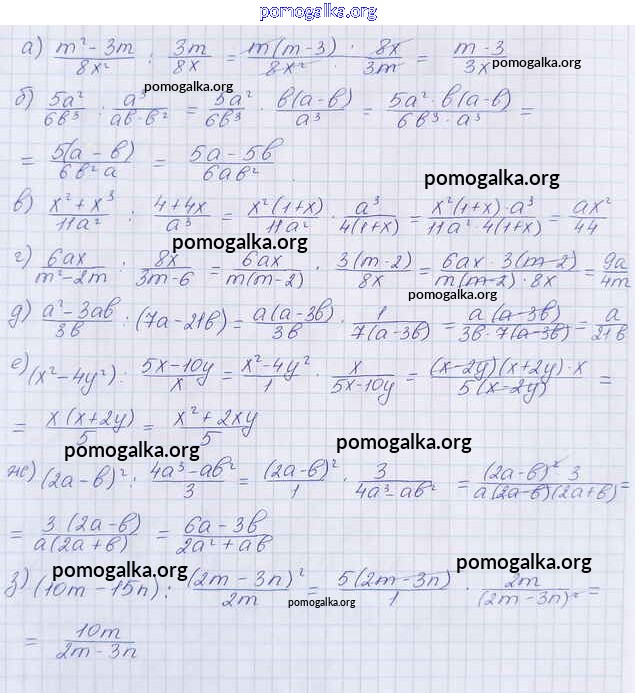 pomogalka.org
а) (m² - 3m)/(8x²) : 3m/8x = m(m-3)/8x² · 8x/3m = (m-3)/3x pomogalka.org
pomogalka.org
б) 5a²/6в³ : a³/(aв-в²) = 5a²/6в³ · в(a-в)/a³ = 5a²·в(a-в)/(6в³·a³) =
= 5(a-в)/6в²a = (5a-5в)/6aв²
pomogalka.org
в) (x²+x³)/11a² : (4+4x)/a³ = x²(1+x)/11a² · a³/4(1+x) = x²(1+x)·a³/(11a²·4(1+x)) = ax²/44
pomogalka.org
г) 6ax/(m²-2m) : 8x/(3m-6) = 6ax/m(m-2) · 3(m-2)/8x = 6ax·3(m-2)/(m(m-2)·8x) = 9a/4m
pomogalka.org
д) (a²-3aв)/3в : (7a-21в) = a(a-3в)/3в · 1/7(a-3в) = a(a-3в)/(3в·7(a-3в)) = a/21в
е) (x²-4y²) : (5x-10y)/x = (x²-4y²)/1 · x/(5x-10y) = (x-2y)(x+2y)·x/5(x-2y) =
= x(x+2y)/5 = (x²+2xy)/5
pomogalka.org pomogalka.org
ж) (2a-в)² : (4a³-aв²)/3 = (2a-в)²/1 · 3/(4a³-aв²) = (2a-в)² 3/a(2a-в)(2a+в) =
= 3(2a-в)/a(2a+в) = (6a-3в)/(2a²+aв)
pomogalka.org pomogalka.org
з) (10m-15n) : (2m-3n)²/2m = 5(2m-3n)/1 · 2m/(2m-3n)² =
pomogalka.org
= 10m/(2m-3n)